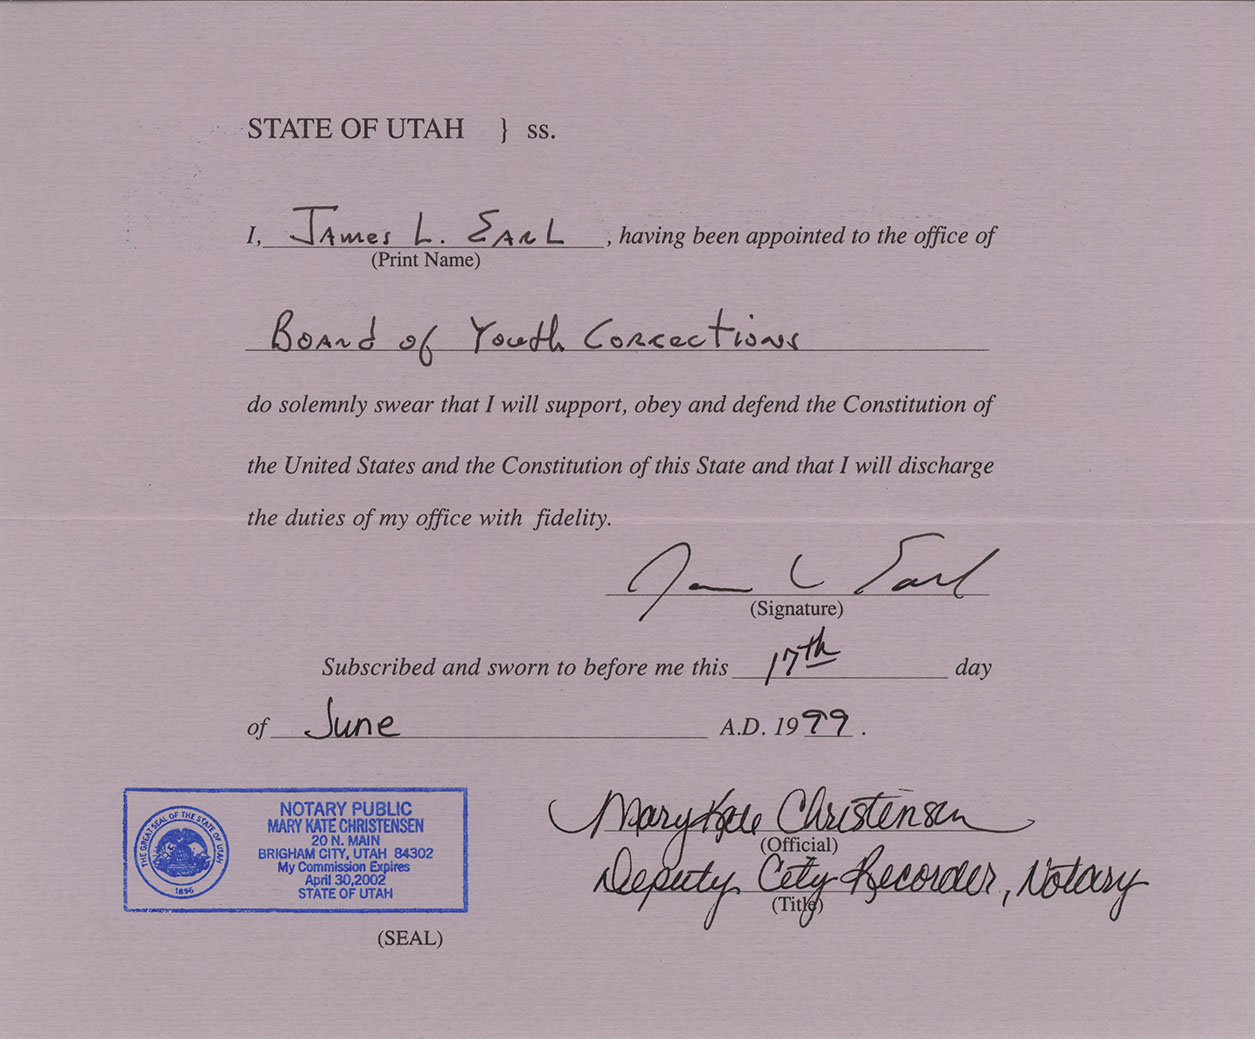 STATE OF UTAH } ss.
I, James L. Earl, having been appointed to the office of
(Print Name)
Board of Youth Corrections
do solemnly swear that I will support, obey and defend the Constitution of
the United States and the Constitution of this State and that I will discharge
the duties of my office with fidelity.
James L Earl
(Signature)
Subscribed and sworn to before me this 17th day
of June A.D. 1999.
Mary Kate Christensen
(Official)
Deputy City Recorder, Notary
(Title)
THE GREAT SEAL OF THE STATE OF UTAH
1896
NOTARY PUBLIC
MARY KATE CHRISTENSEN
20 N. MAIN
BRIGHAM CITY, UTAH 84302
My Commission Expires
April 30, 2002
STATE OF UTAH
(SEAL)